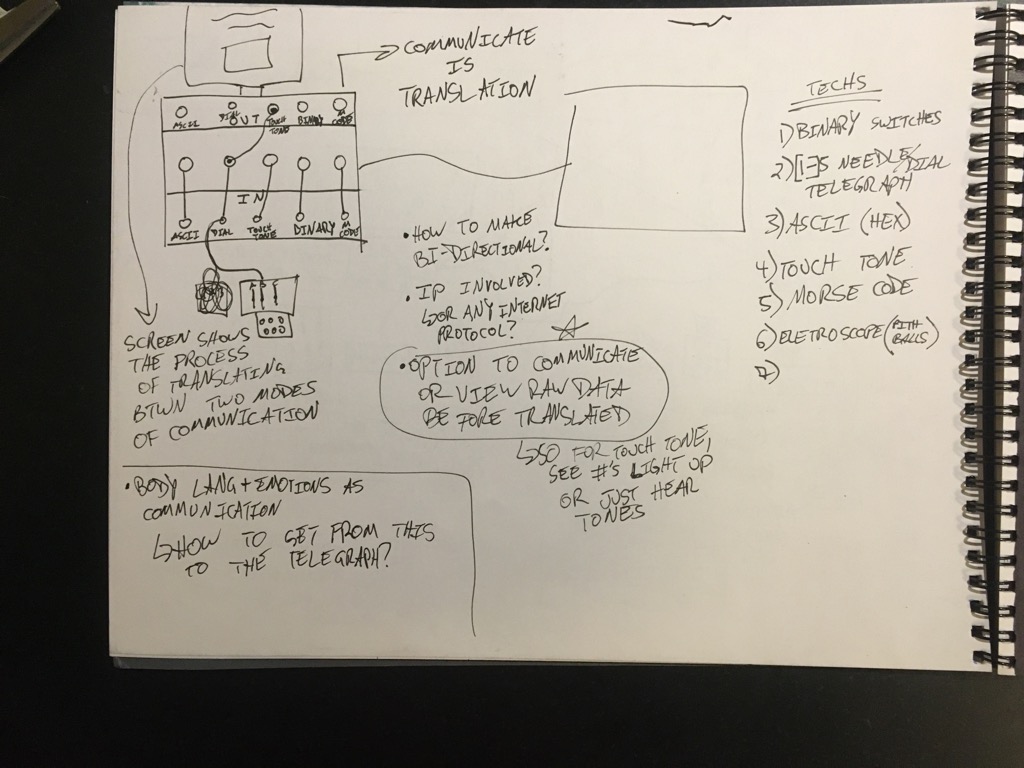 → COMMUNICATE
IS
TRANSLATION
ASCII DIAL TOUCH TONE BINARY M CODE
OUT
IN
ASCII DIAL TOUCH TONE BINARY M CODE
SCREEN SHOWS
THE PROCESS
OF TRANSLATING
BTWN TWO MODES
OF COMMUNICATION
• HOW TO MAKE
BI-DIRECTIONAL?
• IP INVOLVED?
↳ OR ANY INTERNET
PROTOCOL?
• OPTION TO COMMUNICATE
OR VIEW RAW DATA
BEFORE TRANSLATED
↳ SO FOR TOUCH TONE,
SEE #'S LIGHT UP
OR JUST HEAR
TONES
• BODY LANG + EMOTIONS AS
COMMUNICATION
↳ HOW TO GET FROM THIS
TO THE TELEGRAPH?
TECHS
1) BINARY SWITCHES
2) NEEDLE/DIAL
TELEGRAPH
3) ASCII (HEX)
4) TOUCH TONE
5) MORSE CODE
6) ELETROSCOPE (PITH BALLS)
7)